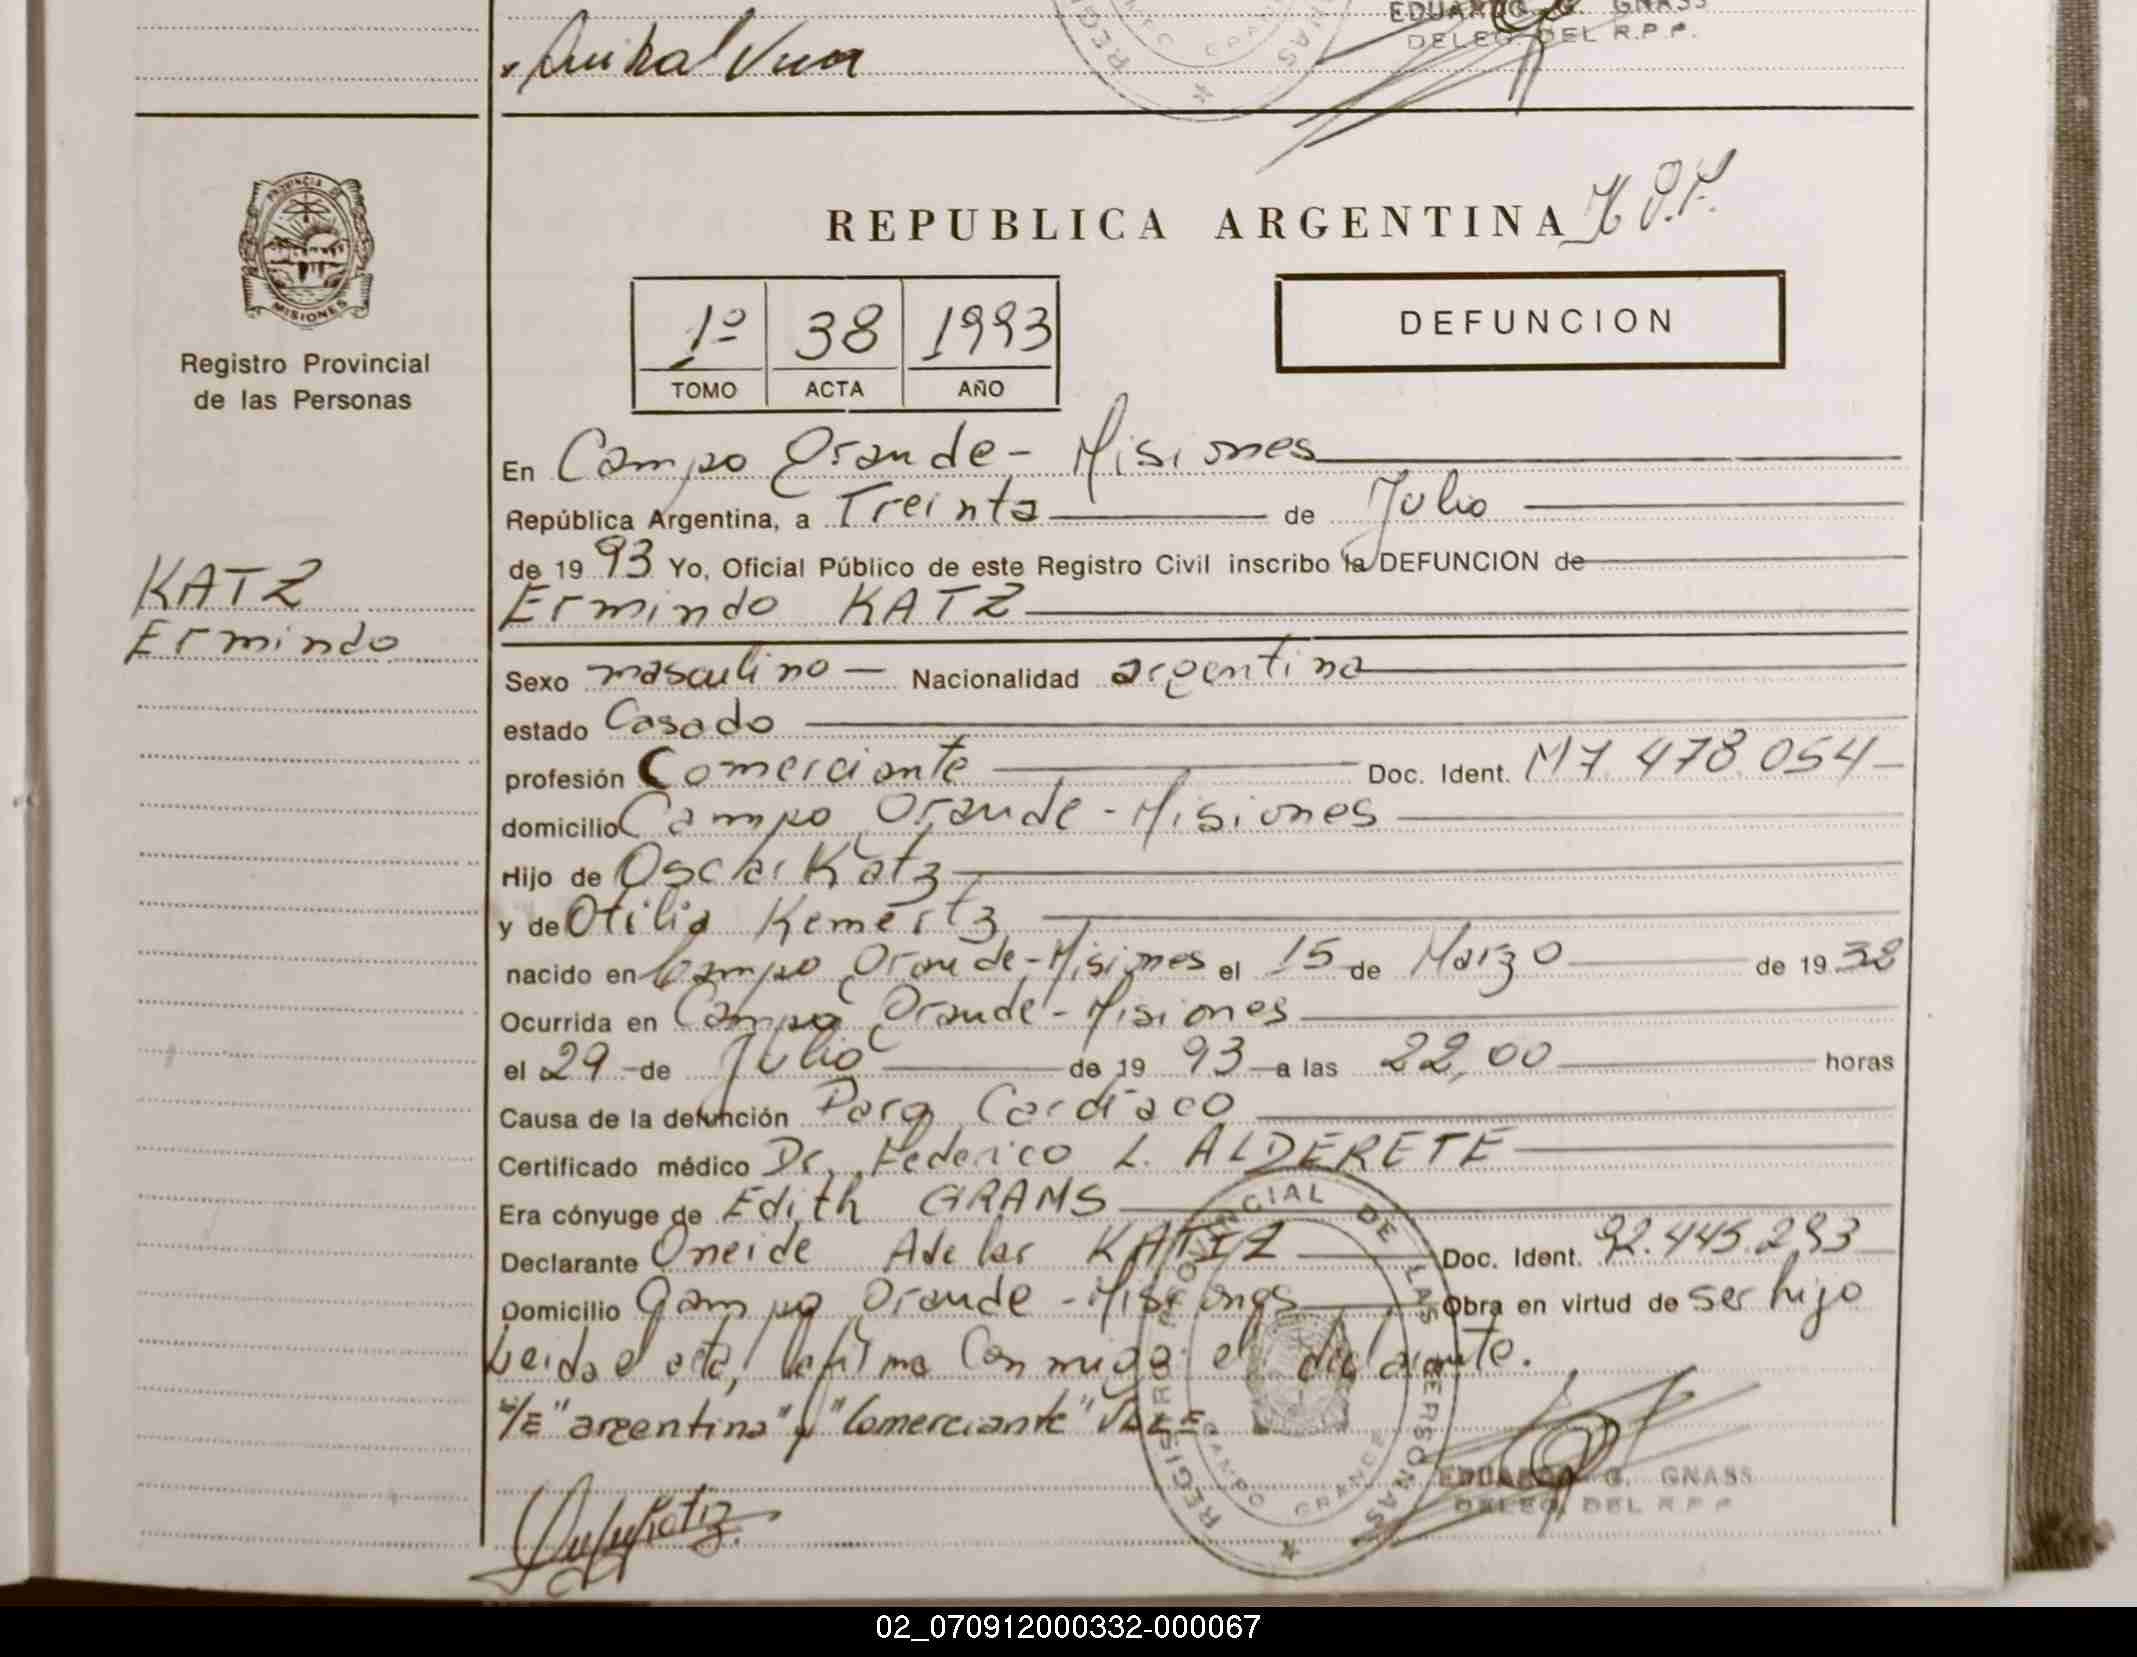 Anibal Vier
EDUARDO G. GNASS
DELEG. DEL R.P.P.
PROVINCIA DE
MISIONES
Registro Provincial
de las Personas
REPUBLICA ARGENTINA
1º 38 1993
TOMO ACTA AÑO
DEFUNCION
En Campo Grande - Misiones
República Argentina, a Treinta de Julio
de 1993 Yo, Oficial Público de este Registro Civil inscribo la DEFUNCION de
KATZ
Ermindo
Ermindo KATZ
Sexo masculino - Nacionalidad argentina
estado Casado
profesión Comerciante Doc. Ident. M7.478.054
domicilio Campo Grande - Misiones
Hijo de Oscar Katz
y de Otilia Kemertz
nacido en Campo Grande - Misiones el 15 de Marzo de 1938
Ocurrida en Campo Grande - Misiones
el 29 - de Julio de 1993 a las 22,00 horas
Causa de la defunción Paro Cardiaco
Certificado médico Dr. Federico L. ALDERETE
Era cónyuge de Edith GRAMS
Declarante Oneide Adelar KATZ Doc. Ident. 92.445.293
Domicilio Campo Grande - Misiones Obra en virtud de ser hijo
Leida el acta, la firma conmigo el declarante.
S/E "argentina" y "Comerciante" VALE
REGISTRO PROVINCIAL DE LAS PERSONAS
CAMPO GRANDE
EDUARDO G. GNASS
DELEG. DEL R.P.P.
02_070912000332-000067